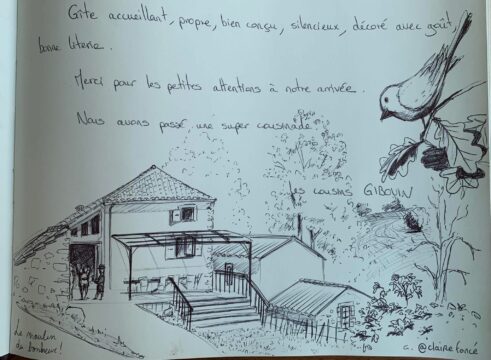 Gîte accueillant, propre, bien conçu, silencieux, décoré avec goût,
bonne literie.
Merci pour les petites attentions à notre arrivée.
Nous avons passé une super cousinade.
Les cousins GIBOUIN
Le moulin
du bonheur!
c. @clairefoncé